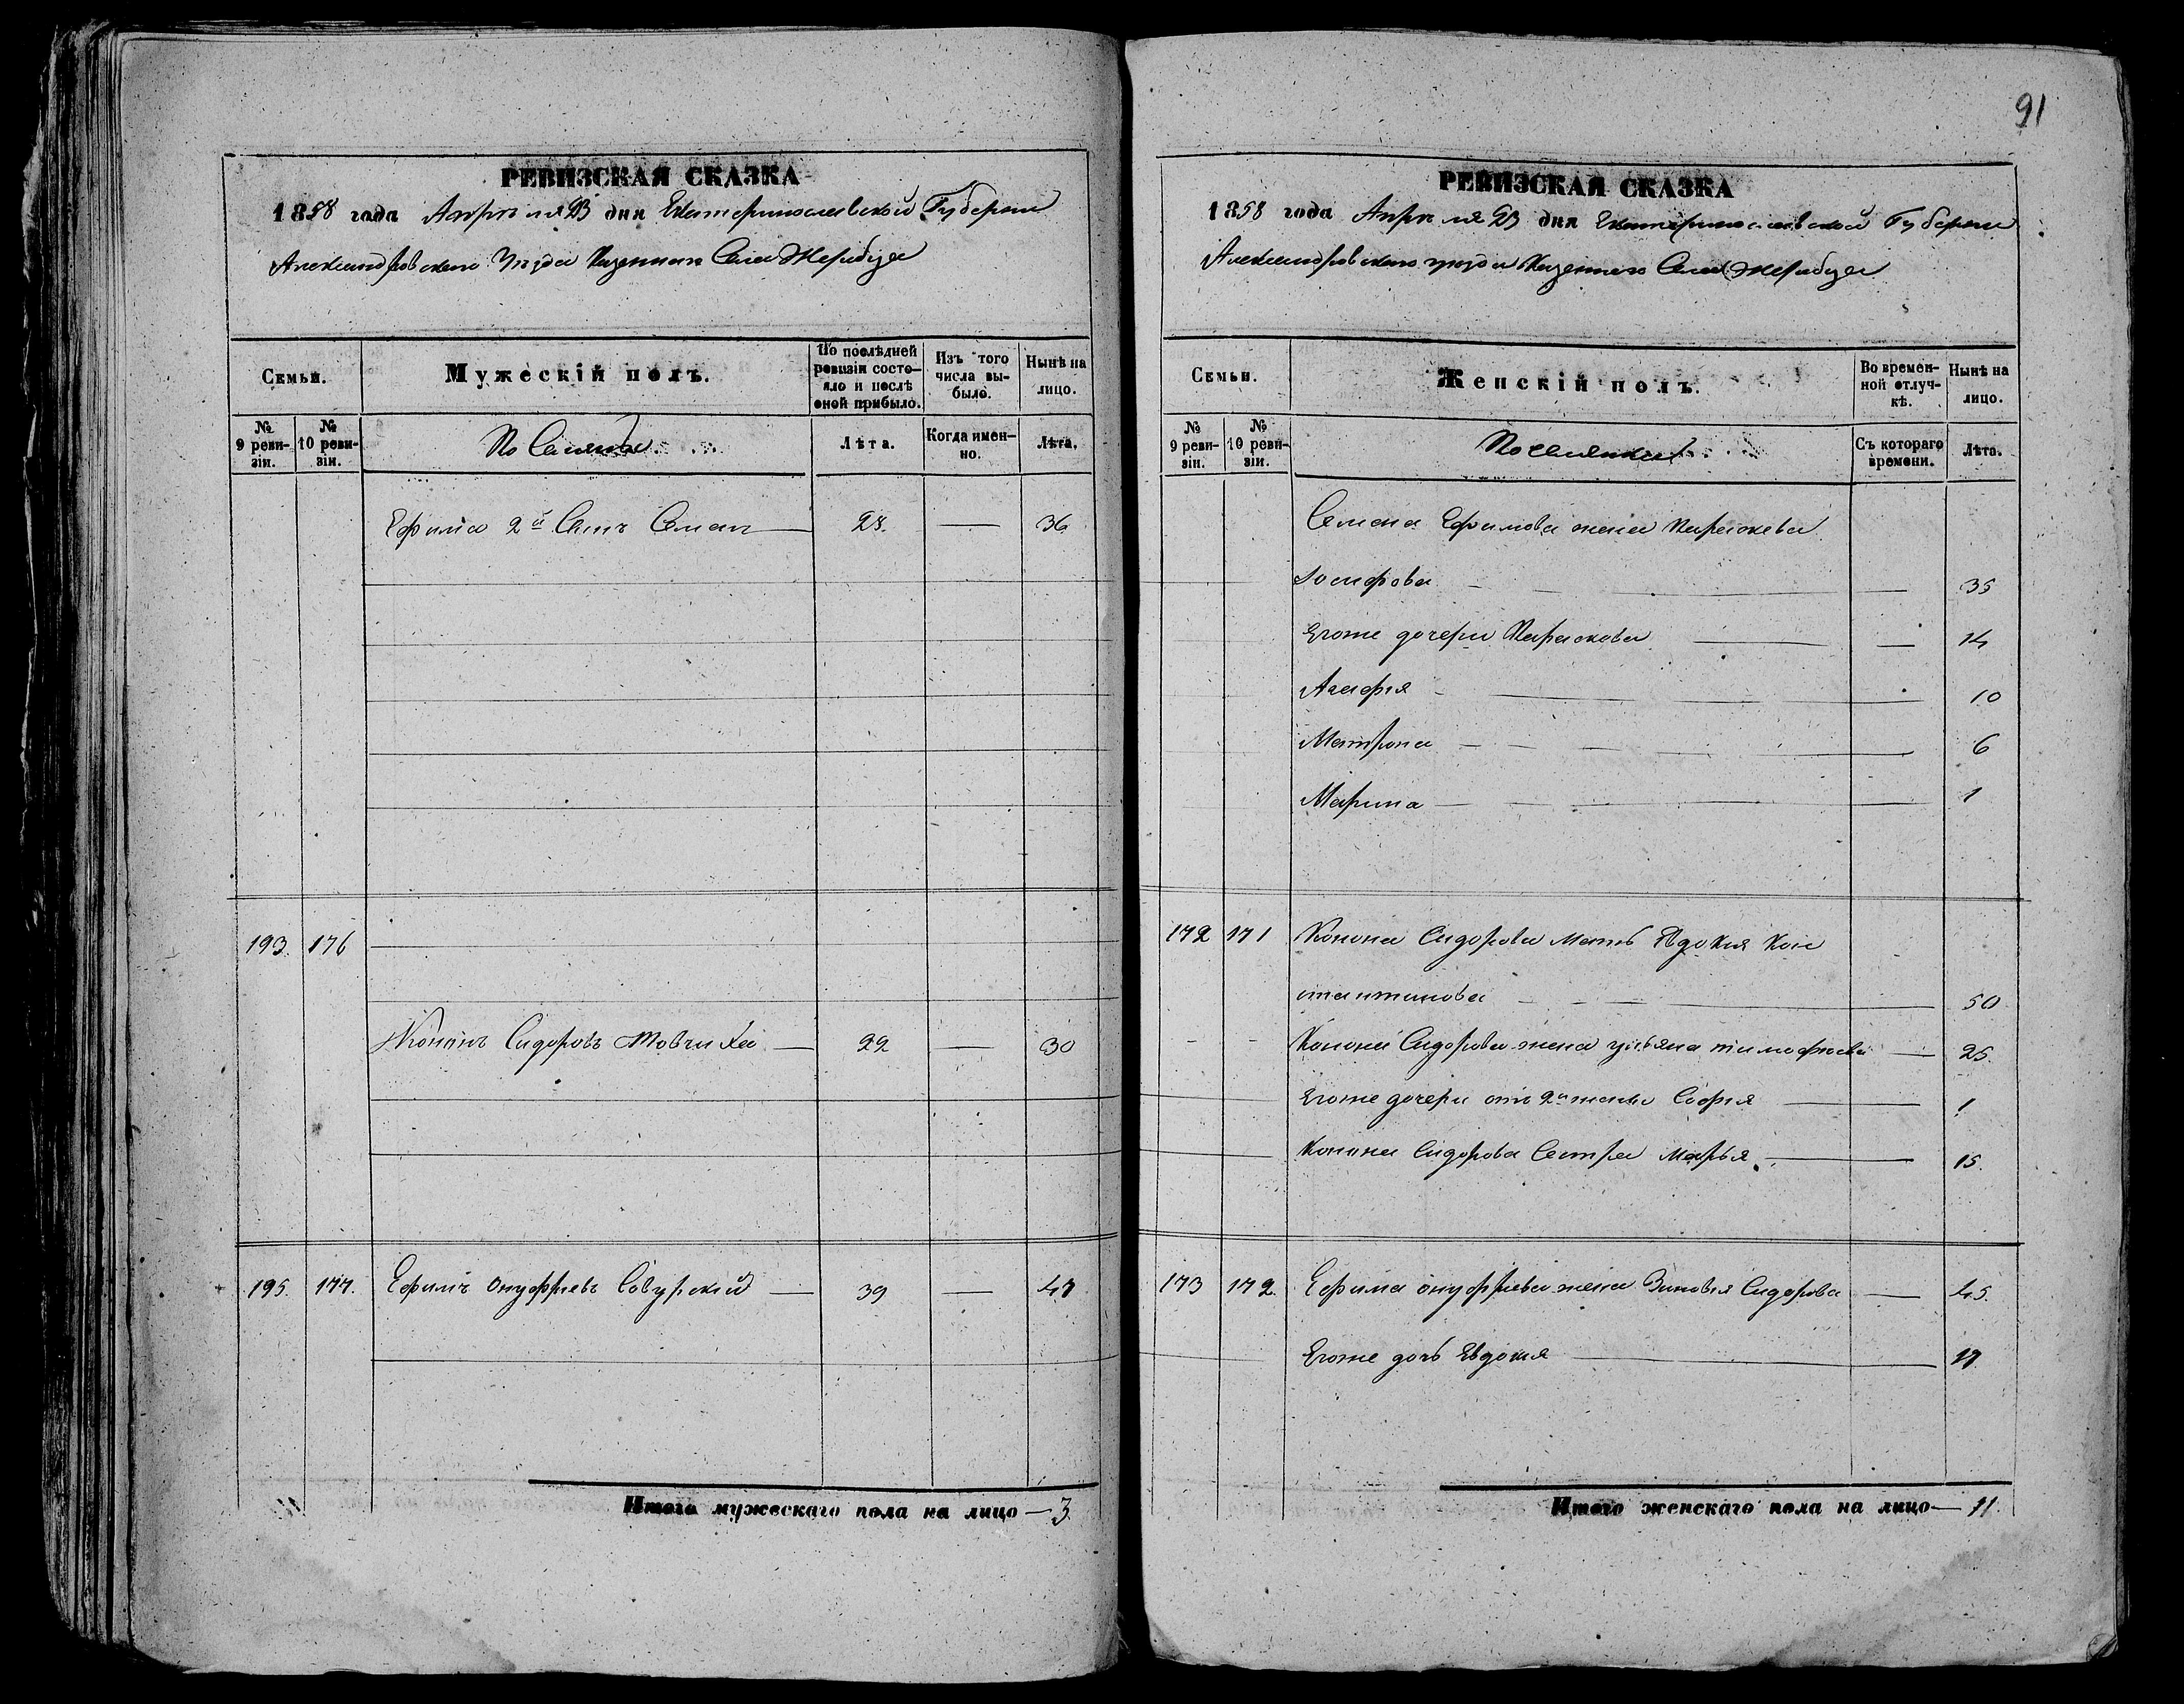 РЕВИЗСКАЯ СКАЗКА
1858 года Апреля 23 дня Екатеринославской Губернии
Александровскаго Уезда Казеннаго Села Жеребца
Семьи.
Мужескій полъ.
По послѣдней ревизіи состояло и послѣ оной прибыло.
Изъ того числа выбыло.
Нынѣ на лицо.
№ 9 ревизіи.
№ 10 ревизіи.
Поселяне
Лѣта.
Когда именно.
Лѣта.
Ефима 2й Сынъ Семенъ — 28. — 36
193. 176
Кононъ Сидоровъ Товчика — 22 — 30
195. 177. Ефимъ Онуфріевъ Савурскій — 39 — 47
Итого мужескаго пола на лицо — 3
91
РЕВИЗСКАЯ СКАЗКА
1858 года Апреля 23 дня Екатеринославской Губернии
Александровскаго уезда Казеннаго Села Жеребца
Семьи.
Женскій полъ.
Во временной отлучкѣ.
Нынѣ на лицо.
№ 9 ревизіи.
№ 10 ревизіи.
Поселянки
Съ котораго времени.
Лѣта.
Семена Ефимова жена Параскева
Іосифова — 35
Егоже дочери Параскова — 14
Агафія — 10
Матрона — 6
Марина — 1
172 171 Конона Сидорова Мать Явдокия Кон
стантинова — 50
Конона Сидорова жена Ульяна тимофеева — 25.
Егоже дочери отъ 2й жены София — 1
Конона Сидорова Сестра Марья — 15.
173 172. Ефима онуфріева жена Зиновья Сидорова — 45.
Егоже дочь Евдокия — 17
Итого женскаго пола на лицо — 11